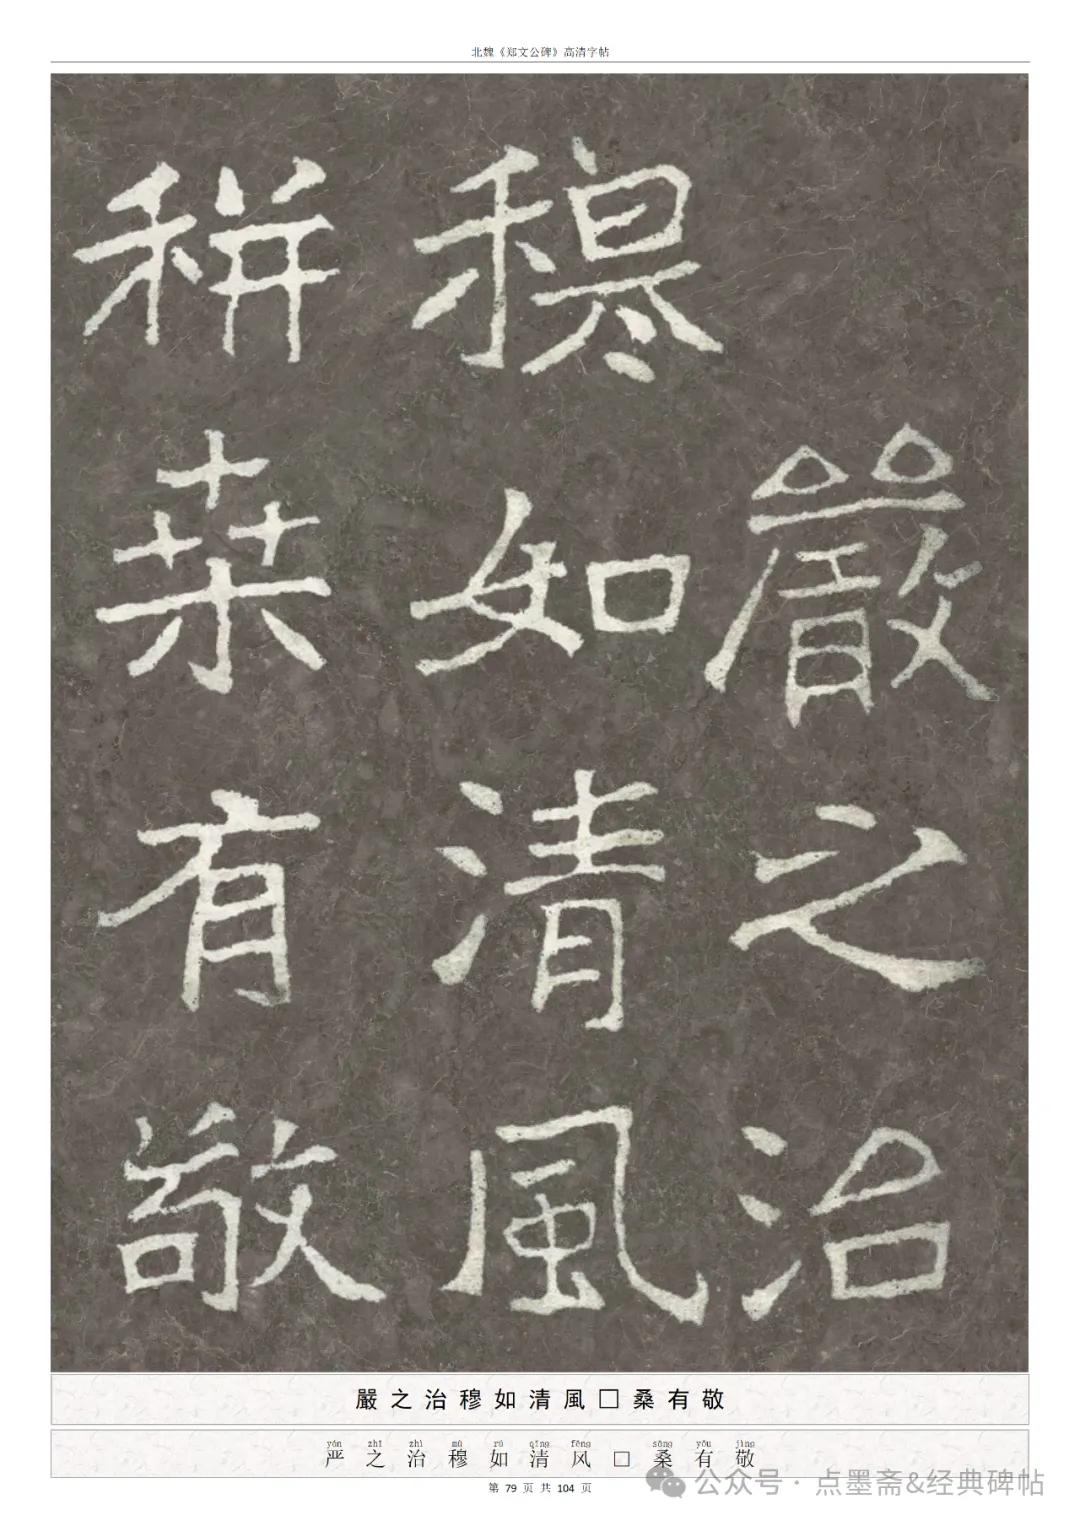 北魏《郑文公碑》高清字帖
嚴之治
穆如清風
耕桒有敬
嚴之治穆如清風□桑有敬
yán zhī zhì mù rú qīng fēng sāng yǒu jìng
严之治穆如清风□桑有敬
第 79 页 共 104 页
公众号·点墨斋&经典碑帖